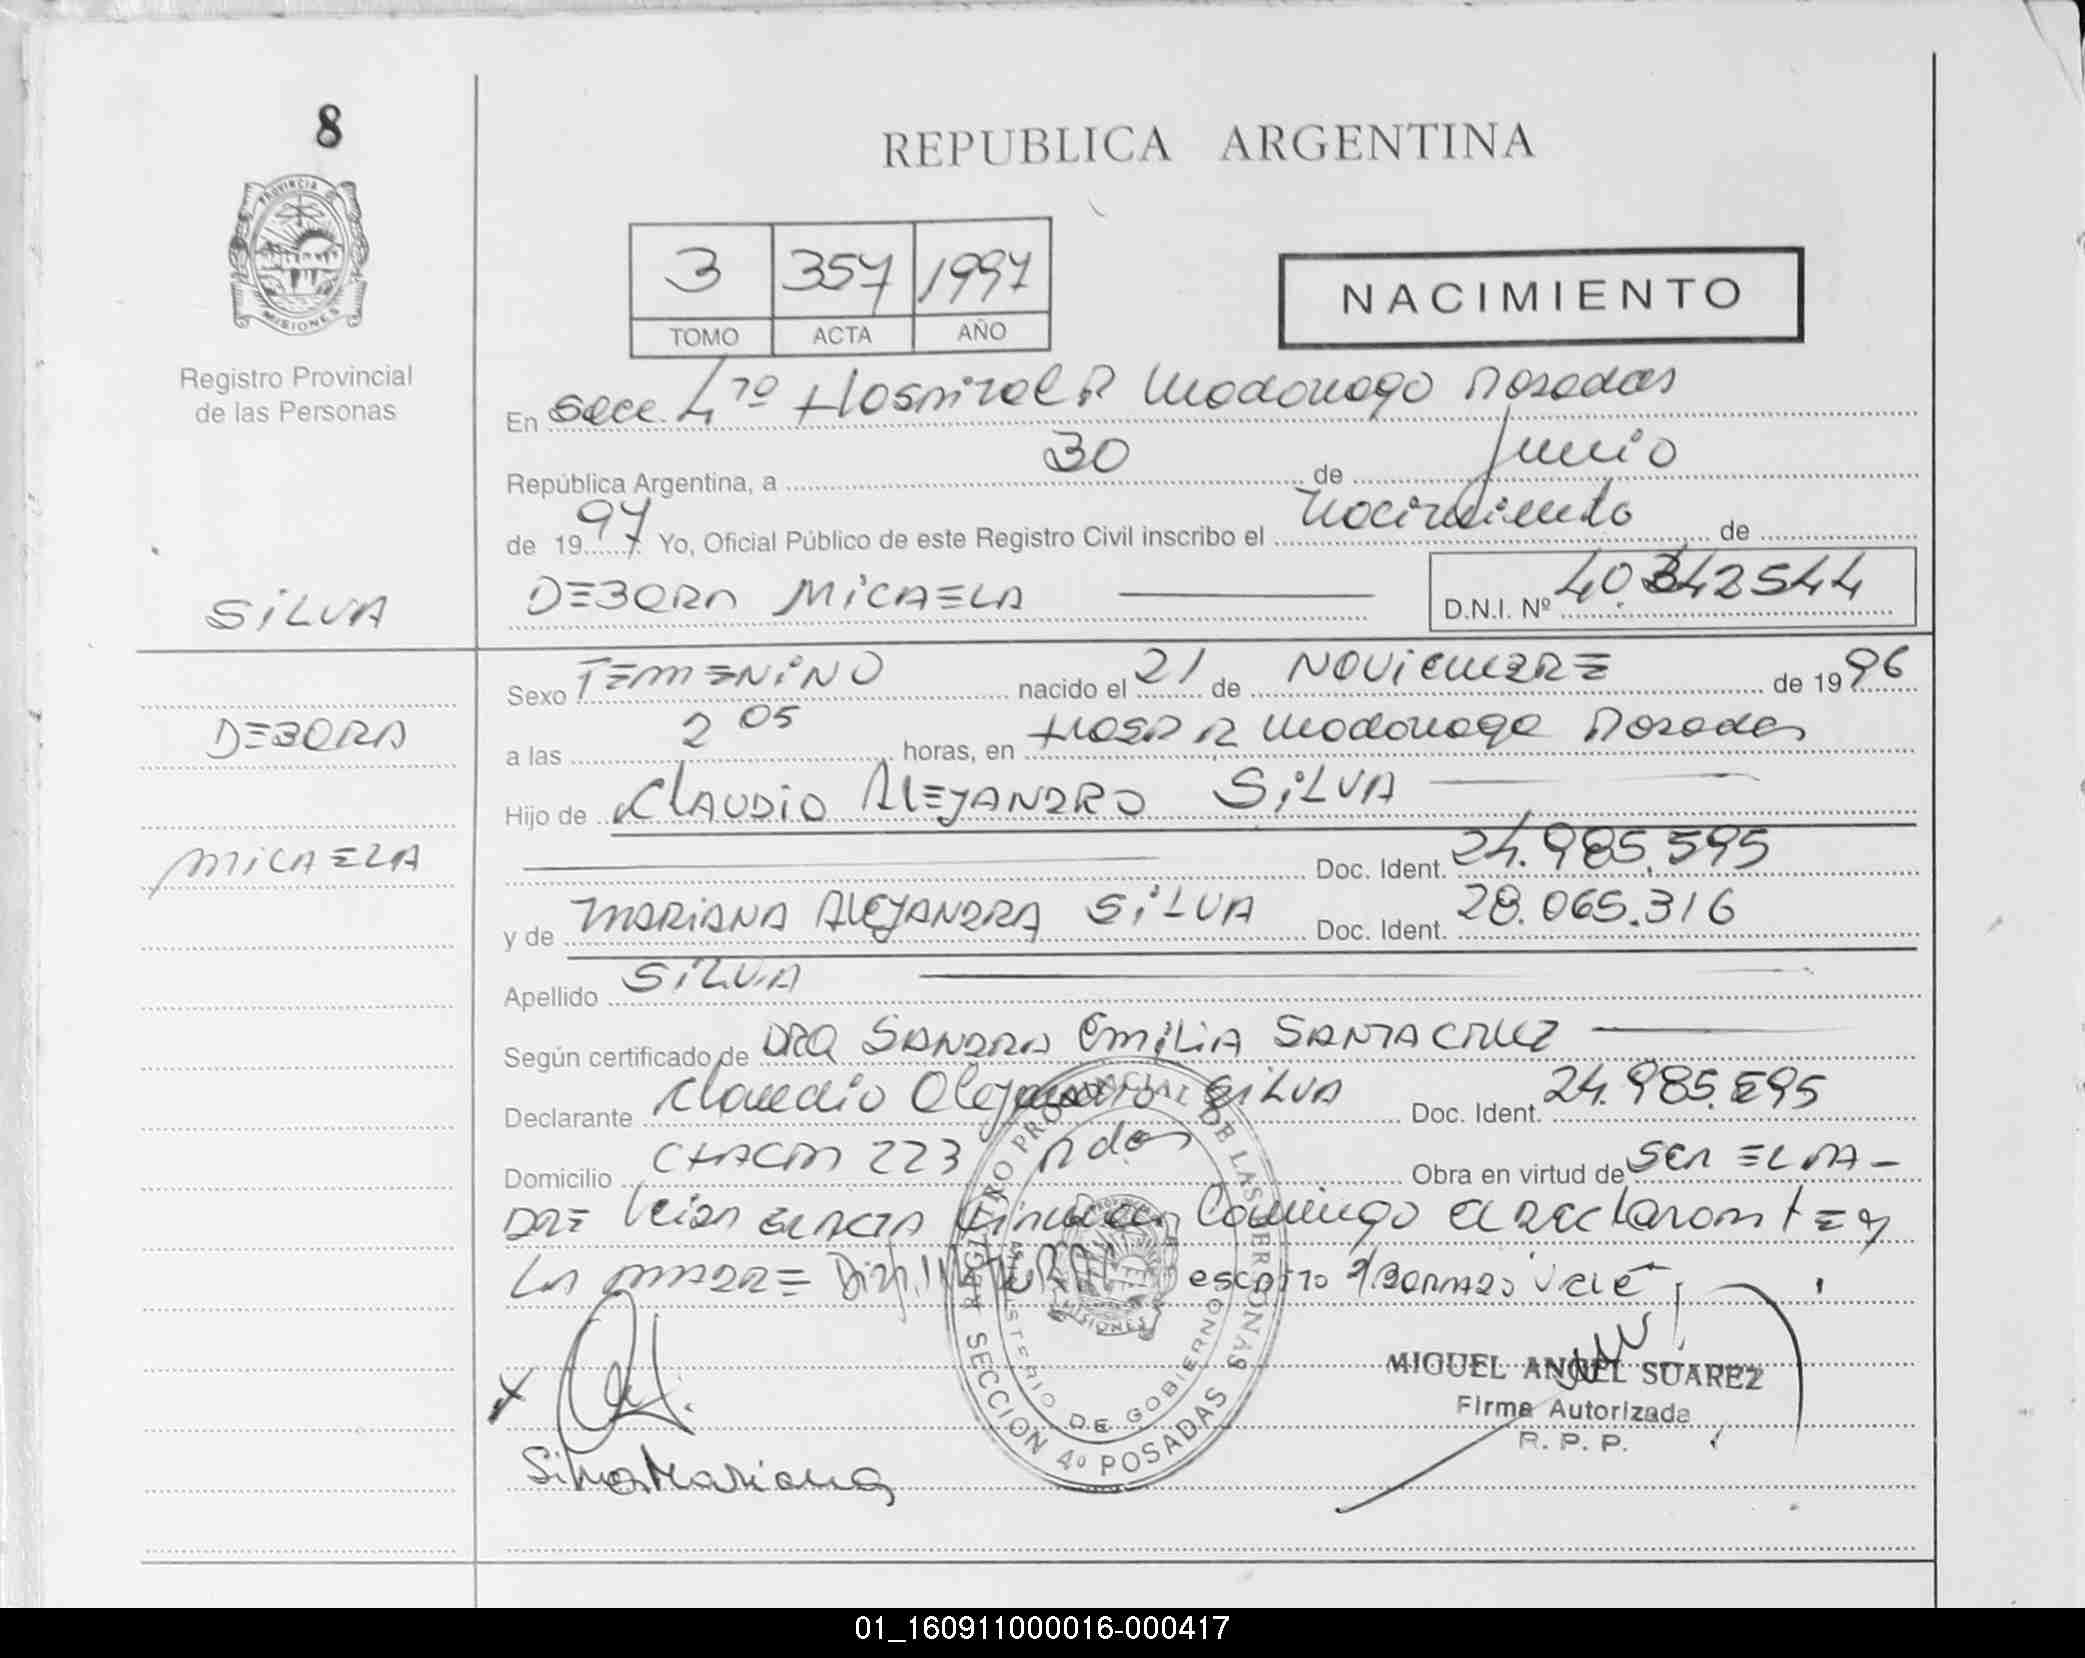 8
PROVINCIA
MISIONES
Registro Provincial
de las Personas
REPUBLICA ARGENTINA
3 357 1997
TOMO ACTA AÑO
NACIMIENTO
En Secc. 4ta Hospital R Madariaga Posadas
República Argentina, a 30 de Junio
de 1997 Yo, Oficial Público de este Registro Civil inscribo el nacimiento de
SILVA
DEBORA MICAELA D.N.I. Nº 40342544
Sexo FEMENINO nacido el 21 de NOVIEMBRE de 1996
DEBORA
a las 2 05 horas, en HOSP R Madariaga Posadas
Hijo de CLAUDIO ALEJANDRO SILVA
MICAELA
Doc. Ident. 24.985.595
y de MARIANA ALEJANDRA SILVA Doc. Ident. 28.065.316
Apellido SILVA
Según certificado de DRA SANDRA EMILIA SANTACRUZ
Declarante Claudio Alejandro SILVA Doc. Ident. 24.985.595
Domicilio CHACRA 223 Pdas Obra en virtud de SER EL PA-
DRE Leida ESTA ACTA firman Conmigo el DECLARANTE y
LA MADRE escrito Vale
REGISTRO PROVINCIAL DE LAS PERSONAS
MINISTERIO DE GOBIERNO
MISIONES
SECCION 4º POSADAS
MIGUEL ANGEL SUAREZ
Firma Autorizada
R. P. P.
Silva Mariana
01_160911000016-000417